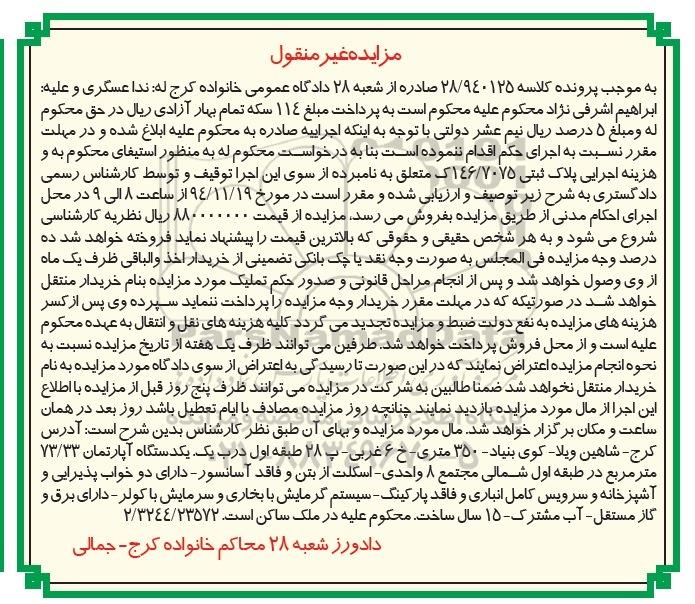 مزایده غیر منقول
به موجب پرونده کلاسه ۲۸/۹۴۰۱۲۵ صادره از شعبه ۲۸ دادگاه عمومی خانواده کرج له: ندا عسگری و علیه:
ابراهیم اشرفی نژاد محکوم علیه محکوم است به پرداخت مبلغ ۱۱۴ سکه تمام بهار آزادی ریال در حق محکوم
له ومبلغ ۵ درصد ریال نیم عشر دولتی با توجه به اینکه اجراییه صادره به محکوم علیه ابلاغ شده و در مهلت
مقرر نسبت به اجرای حکم اقدام ننموده است بنا به درخواست محکوم له به منظور استیفای محکوم به و
هزینه اجرایی پلاک ثبتی ۱۴۶/۷۰۷۵ک متعلق به نامبرده از سوی این اجرا توقیف و توسط کارشناس رسمی
دادگستری به شرح زیر توصیف و ارزیابی شده و مقرر است در مورخ ۹۴/۱۱/۱۹ از ساعت ۸ الی ۹ در محل
اجرای احکام مدنی از طریق مزایده بفروش می رسد، مزایده از قیمت ۸۸۰۰۰۰۰۰۰ ریال نظریه کارشناسی
شروع می شود و به هر شخص حقیقی و حقوقی که بالاترین قیمت را پیشنهاد نماید فروخته خواهد شد ده
درصد وجه مزایده فی المجلس به صورت وجه نقد یا چک بانکی تضمینی از خریدار اخذ والباقی ظرف یک ماه
از وی وصول خواهد شد و پس از انجام مراحل قانونی و صدور حکم تملیک مورد مزایده بنام خریدار منتقل
خواهد شد در صورتیکه که در مهلت مقرر خریدار وجه مزایده را پرداخت ننماید سپرده وی پس ازکسر
هزینه های مزایده به نفع دولت ضبط و مزایده تجدید می گردد کلیه هزینه های نقل و انتقال به عهده محکوم
علیه است و از محل فروش پرداخت خواهد شد. طرفین می توانند ظرف یک هفته از تاریخ مزایده نسبت به
نحوه انجام مزایده اعتراض نمایند که در این صورت تا رسیدگی به اعتراض از سوی دادگاه مورد مزایده به نام
خریدار منتقل نخواهد شد. ضمنا طالبین به شرکت در مزایده می توانند ظرف پنج روز قبل از مزایده با اطلاع
این اجرا از مال مورد مزایده بازدید نمایند چنانچه روز مزایده مصادف با ایام تعطیل باشد روز بعد در همان
ساعت و مکان برگزار خواهد شد. مال مورد مزایده و بهای آن طبق نظر کارشناس بدین شرح است: آدرس
کرج- شاهین ویلا- کوی بنیاد- ۳۵۰ متری- خ ۶ غربی- پ ۲۸ طبقه اول درب یک. یکدستگاه آپارتمان ۷۳/۳۳
مترمربع در طبقه اول شمالی مجتمع ۸ واحدی- اسکلت از بتن و فاقد آسانسور- دارای دو خواب پذیرایی و
آشپزخانه و سرویس کامل انباری و فاقد پارکینگ- سیستم گرمایش با بخاری و سرمایش با کولر- دارای برق و
گاز مستقل- آب مشترک- ۱۵ سال ساخت. محکوم علیه در ملک ساکن است. ۲/۳۲۴۴/۲۳۵۷۲
دادورز شعبه ۲۸ محاکم خانواده کرج- جمالی